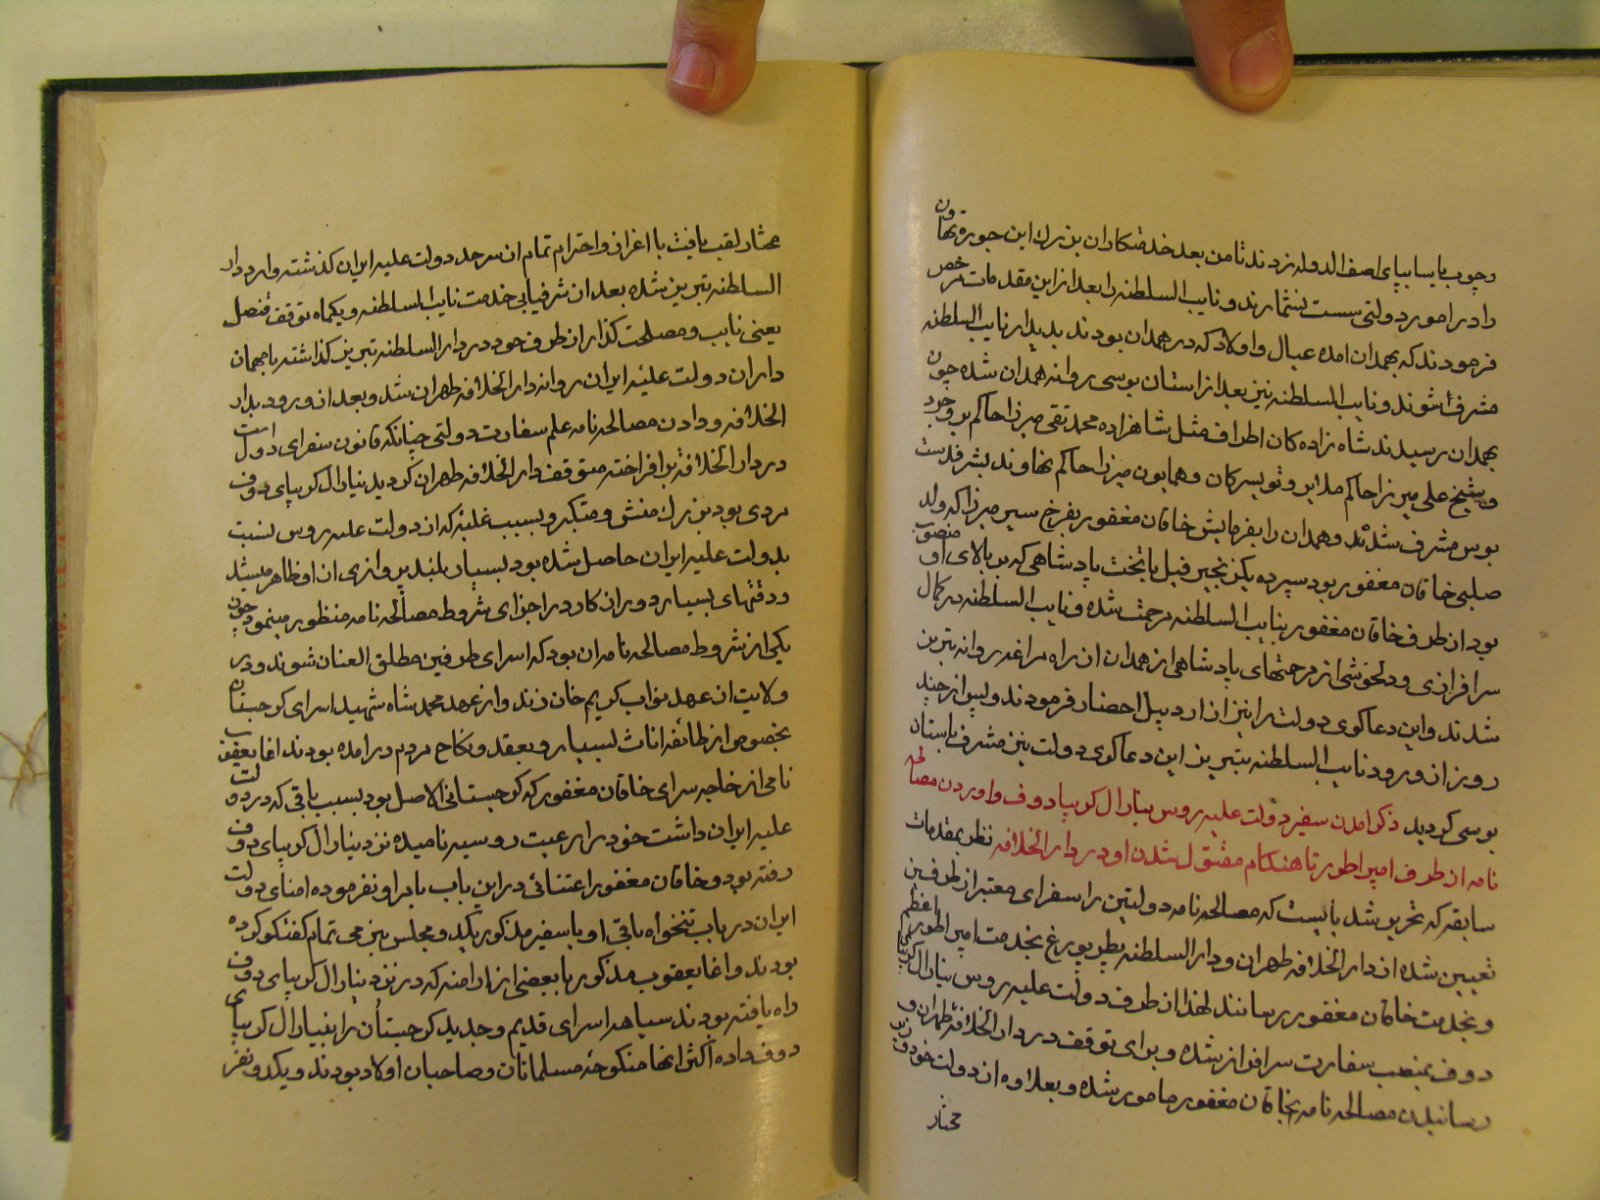 و چوب یاسا بپای اصف الدوله زدند تا من بعد خدمتکاران بزرك این جوره تهاون
را در امور دولتی سست نشمارند و نایب السلطنه را بعد از این مقدمات مرخص
فرمودند که بهمدان امده عیال و اولاد که در همدان بودند بدیدار نایب السلطنه
مشرف شوند و نایب السلطنه نیز بعد از استان بوسی روانه همدان شده چون
بهمدان رسیدند شاه زاده کان اطراف مثل شاهزاده محمد تقی میرزا حاکم بروجرد
و شیخ علی میرزا حاکم ملایر و تویسرکان و همایون میرزا حاکم نهاوند بشرف دست
بوس مشرف شدند و همدان را بفرمایش خاقان مغفور بفرخ سیر میرزا که ولد
صلبی خاقان مغفور بود سپرده یکزنجیر فیل با تخت پادشاهی که بر بالای او منصوب
بود از طرف خاقان مغفور بنایب السلطنه مرحمت شده و نایب السلطنه در کمال
سرافرازی و دلخوشی از مرحمتهای پادشاهی از همدان از راه مراغه روانه تبریز
شدند و این دعا کوی دولت را نیز از اردبیل احضار فرمودند و پس از چند
روز از ورود نایب السلطنه بتبریز این دعا کوی دولت نیز مشرف باستان
بوسی کردید ذکر امدن سفیر دولت علیه روس ینارال کریبادوف و اوردن مصالحه
نامه از طرف امپراطور تا هنکام مقتول شدن او در دار الخلافه نظر بمقدمات
سابقه که تحریر شد بایست که مصالحه نامه دولتین را سفرای معتبر از طرفین
تعیین شده از دار الخلافه طهران و دار السلطنه پطربورغ بخدمت امپراطور اعظم
و بخدمت خاقان مغفور برسانند لهذا از طرف دولت علیه روس ینارال کریبای
دوف بمنصب سفارت سرافراز شده و برای توقف در دار الخلافه طهران و
رسانیدن مصالحه نامه بخاقان مغفور مامور شده و بعلاوه از دولت خود وزیر
مختار
مختار لقب یافت با اعزاز و احترام تمام از سرحد دولت علیه ایران کذشته وارد دار
السلطنه تبریز شده بعد از شرفیابی خدمت نایب السلطنه و یکماه توقف قنصل
یعنی نایب و مصلحت کذار از طرف خود در دار السلطنه تبریز کذاشته با مهمان
داران دولت علیه ایران روانه دار الخلافه طهران شد و بعد از ورود بدار
الخلافه و دادن مصالحه نامه علم سفارت دولتی چنانکه قانون سفرای دول است
در دار الخلافه بر افراخته متوقف دار الخلافه طهران کردید ینارال کریبای دوف
مردی بود بزرك منش و متکبر و بسبب غلبه که از دولت علیه روس نسبت
بدولت علیه ایران حاصل شده بود بسیار بلند پروازی از او ظاهر میشد
و دقتهای بسیار دور از کار در اجزای شروط مصالحه نامه منظور مینمود چون
یکی از شروط مصالحه نامه ان بود که اسرای طرفین مطلق العنان شوند و در
ولایت از عهد نواب کریم خان زند و از عهد محمد شاه شهید اسرای کرجستان
بخصوص از طائفه اناث بسیار و بعقد و نکاح مردم در امده بودند اغا یعقوب
نامی از خاجه سرای خاقان مغفور که کرجستانی الاصل بود بسبب باقی که در دولت
علیه ایران داشت خود را رعیت روسیه نامیده نزد ینارال کریبای دوف
رفته بود و خاقان مغفور اعتنائی در این باب با مر او نفرموده امنای دولت
ایران در باب تنخواه باقی او با سفیر مذکور یکید و مجلس بنرمی تمام کفتکو کرده
بودند و اغا یعقوب مذکور با بعضی از ارامنه که در نزد ینارال کریبای دوف
راه یافته بودند سیاهه اسرای قدیم و جدید کرجستان را بنیارال کریبای
دوف داده اکثر انها منکوحه مسلمانان و صاحبان اولاد بودند و یکدو نفر